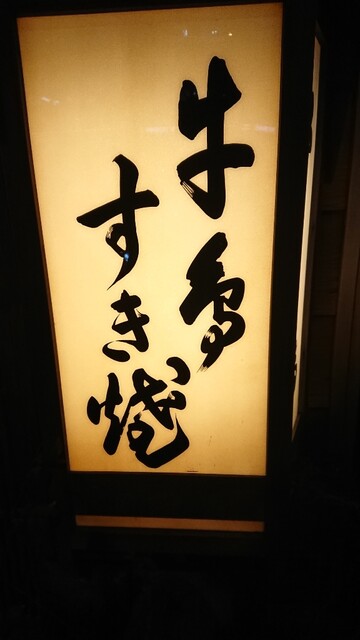 牛鳥
すき焼